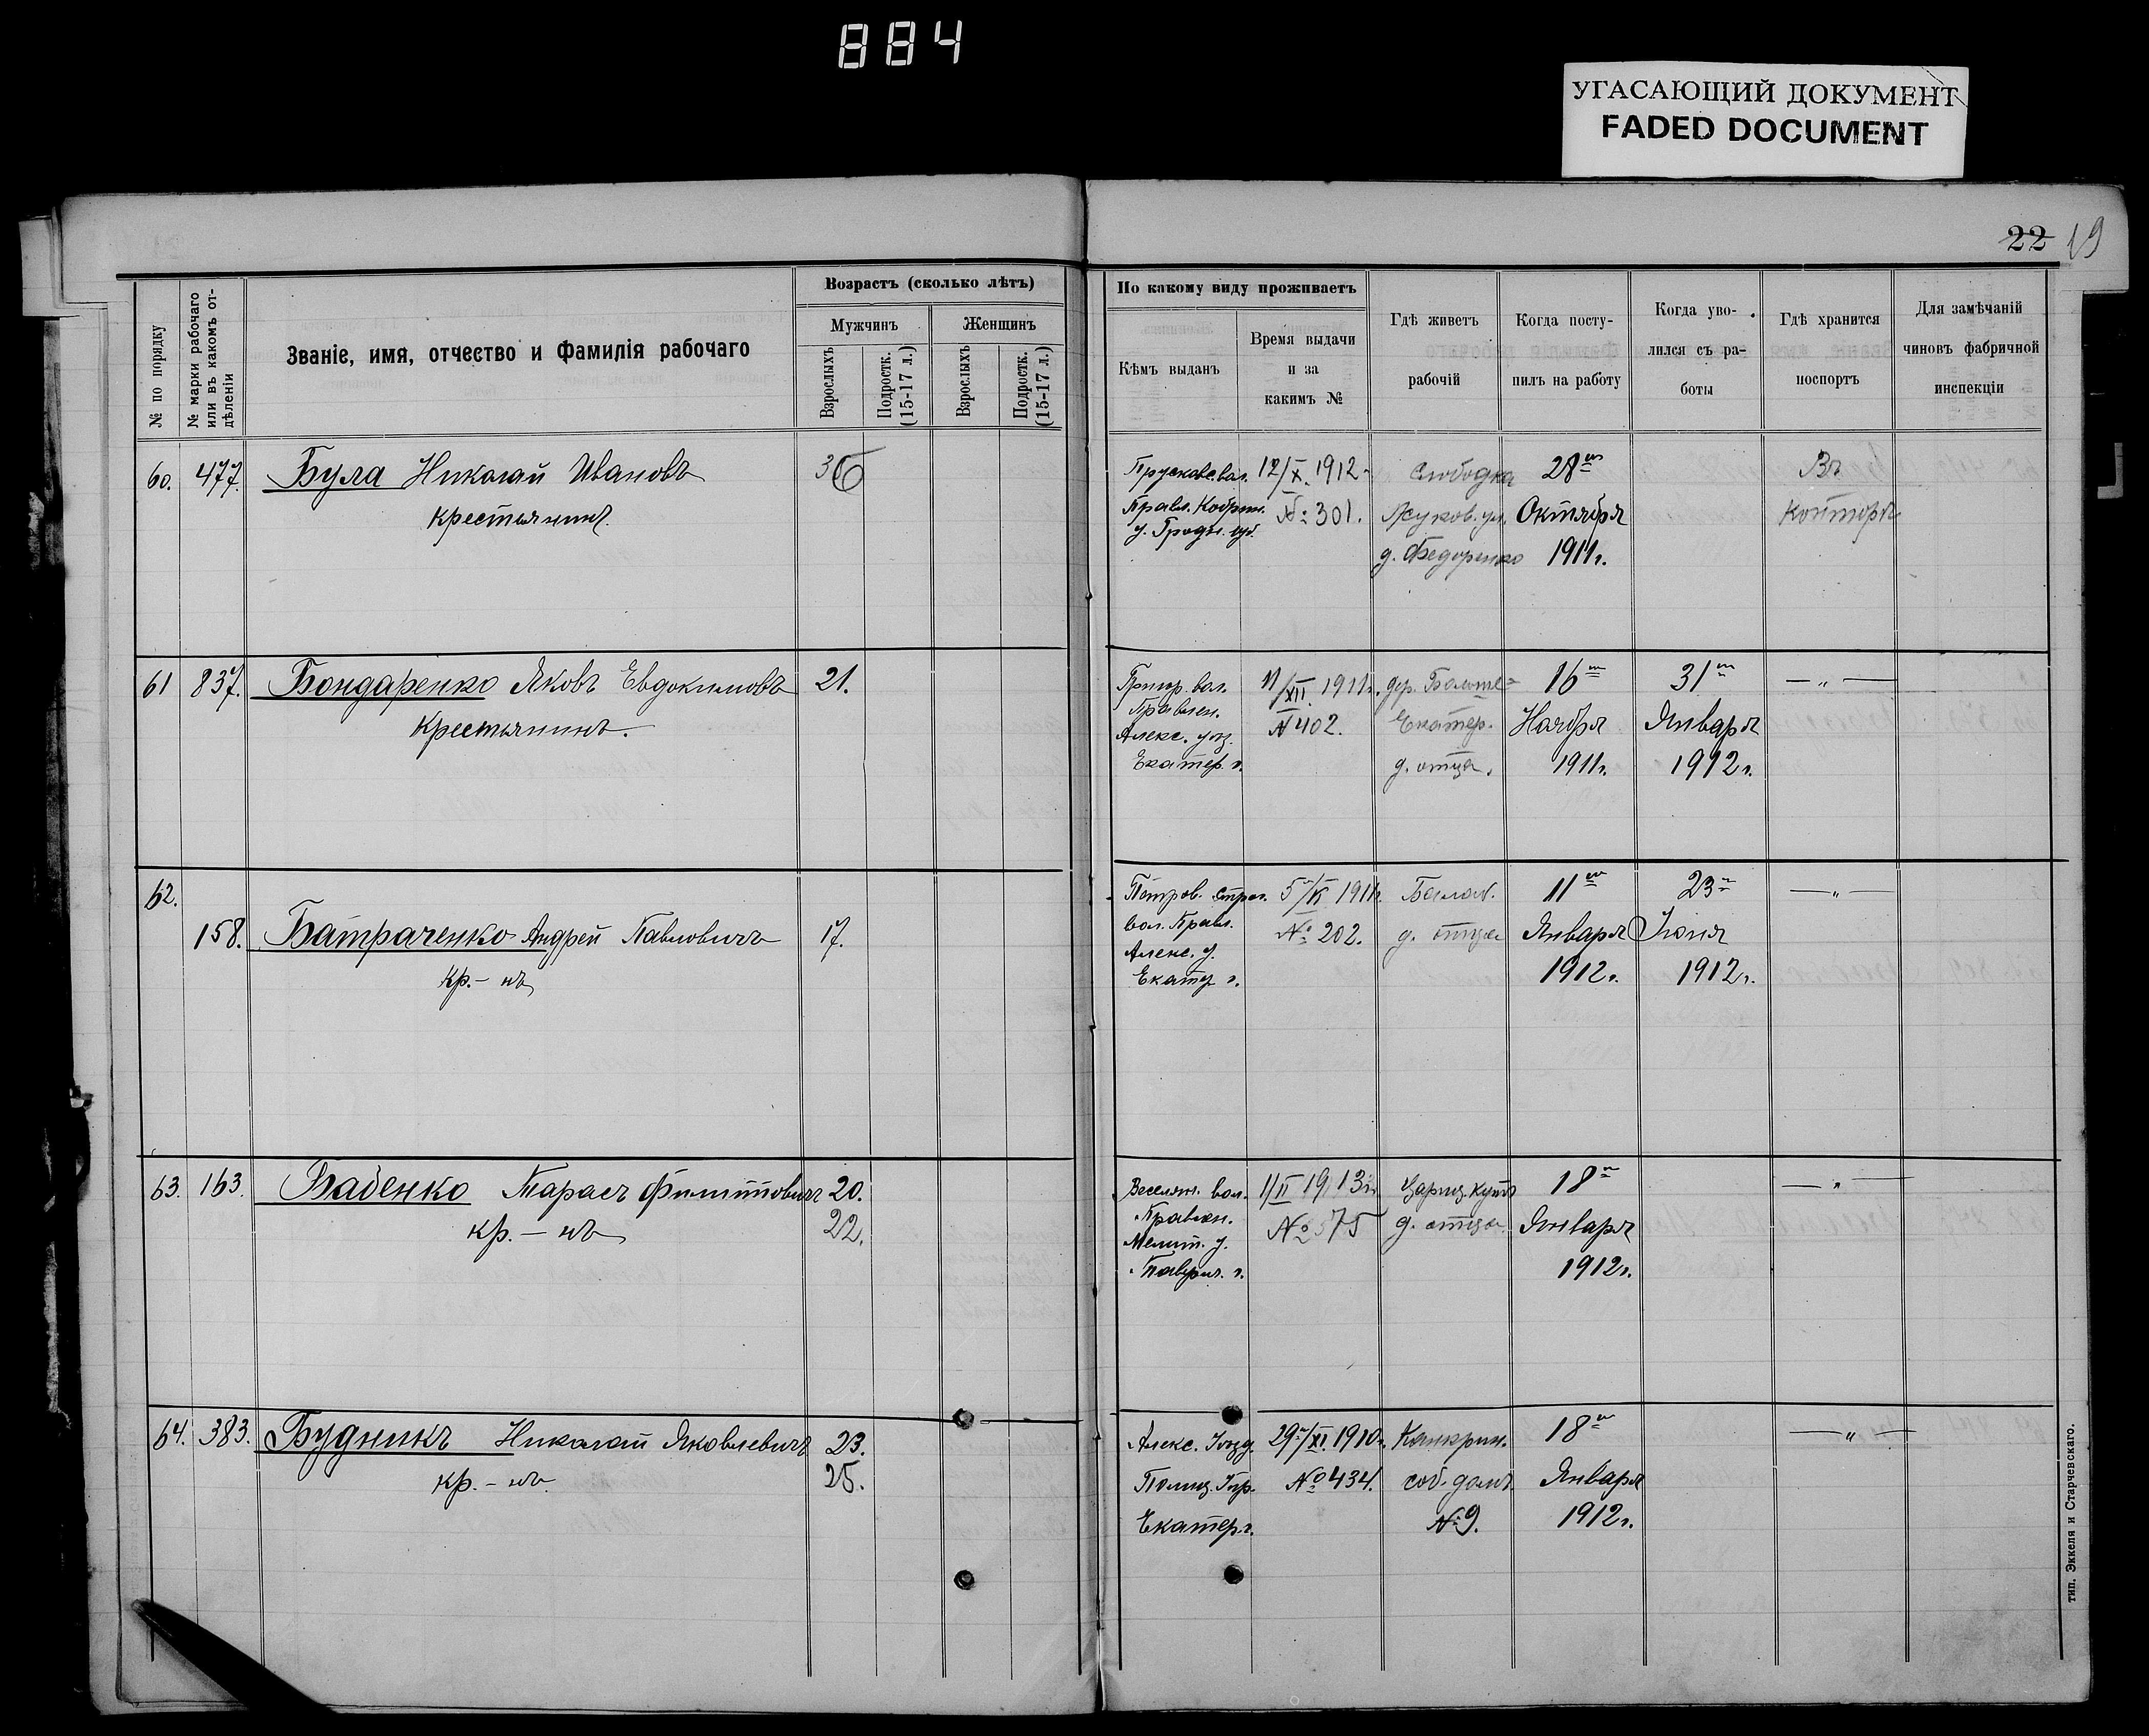 884
УГАСАЮЩИЙ ДОКУМЕНТ
FADED DOCUMENT
22 19
№ по порядку
№ марки рабочаго
или въ какомъ от-
дѣленіи
Званіе, имя, отчество и фамилія рабочаго
Возрастъ (сколько лѣтъ)
Мужчинъ
Женщинъ
Взрослыхъ
Подростк.
(15-17 л.)
Взрослыхъ
Подростк.
(15-17 л.)
По какому виду проживаетъ
Кѣмъ выданъ
Время выдачи
и за
какимъ №
Гдѣ живетъ
рабочій
Когда посту-
пилъ на работу
Когда уво-
лился съ ра-
боты
Гдѣ хранится
поспортъ
Для замѣчаній
чиновъ фабричной
инспекціи
60. 477. Була Николай Ивановъ
крестьянинъ.
Правл. Кобрин.
у. Гродн. губ.
12/X. 1912
№ 301.
Слободка
Жуков. ул.
д. Федоренко
28го
Октября
1911г.
Въ
конторѣ
61 837. Бондаренко Яковъ Евдокимовъ 21.
Крестьянинъ.
Григор. вол.
Правлен.
Алекс. уѣз.
Екатер. г.
11/XII. 1911г.
№ 402.
Екатер.
д. отца.
16го
Ноября
1911г.
31го
Января
1912г.
— „ —
62.
158. Батраченко Андрей Павловичъ 17.
кр.-нъ
вол. Правл.
Алекс. у.
Екатер г.
№ 202.
д. отца
11го
Января
1912г.
23го
Іюня
1912г.
— „ —
63. 163. Бабенко Тарасъ Филипповичъ 20.
кр.-нъ 22.
Веселян. вол.
Правлен.
Мелит. у.
Таврич. г.
1/II 1913г.
№ 575
Цариц. кутъ
д. отца
18го
Января
1912г.
— „ —
64. 383. Будникъ Николай Яковлевичъ 23.
кр.-нъ 25.
Алекс. Уѣзд.
Полиц. Упр.
Екатер. г.
29го/XI. 1910г.
№ 434.
Канкрин.
соб. домъ
№ 9.
18го
Января
1912г.
— „ —
тип. Эккеля и Старчевскаго.